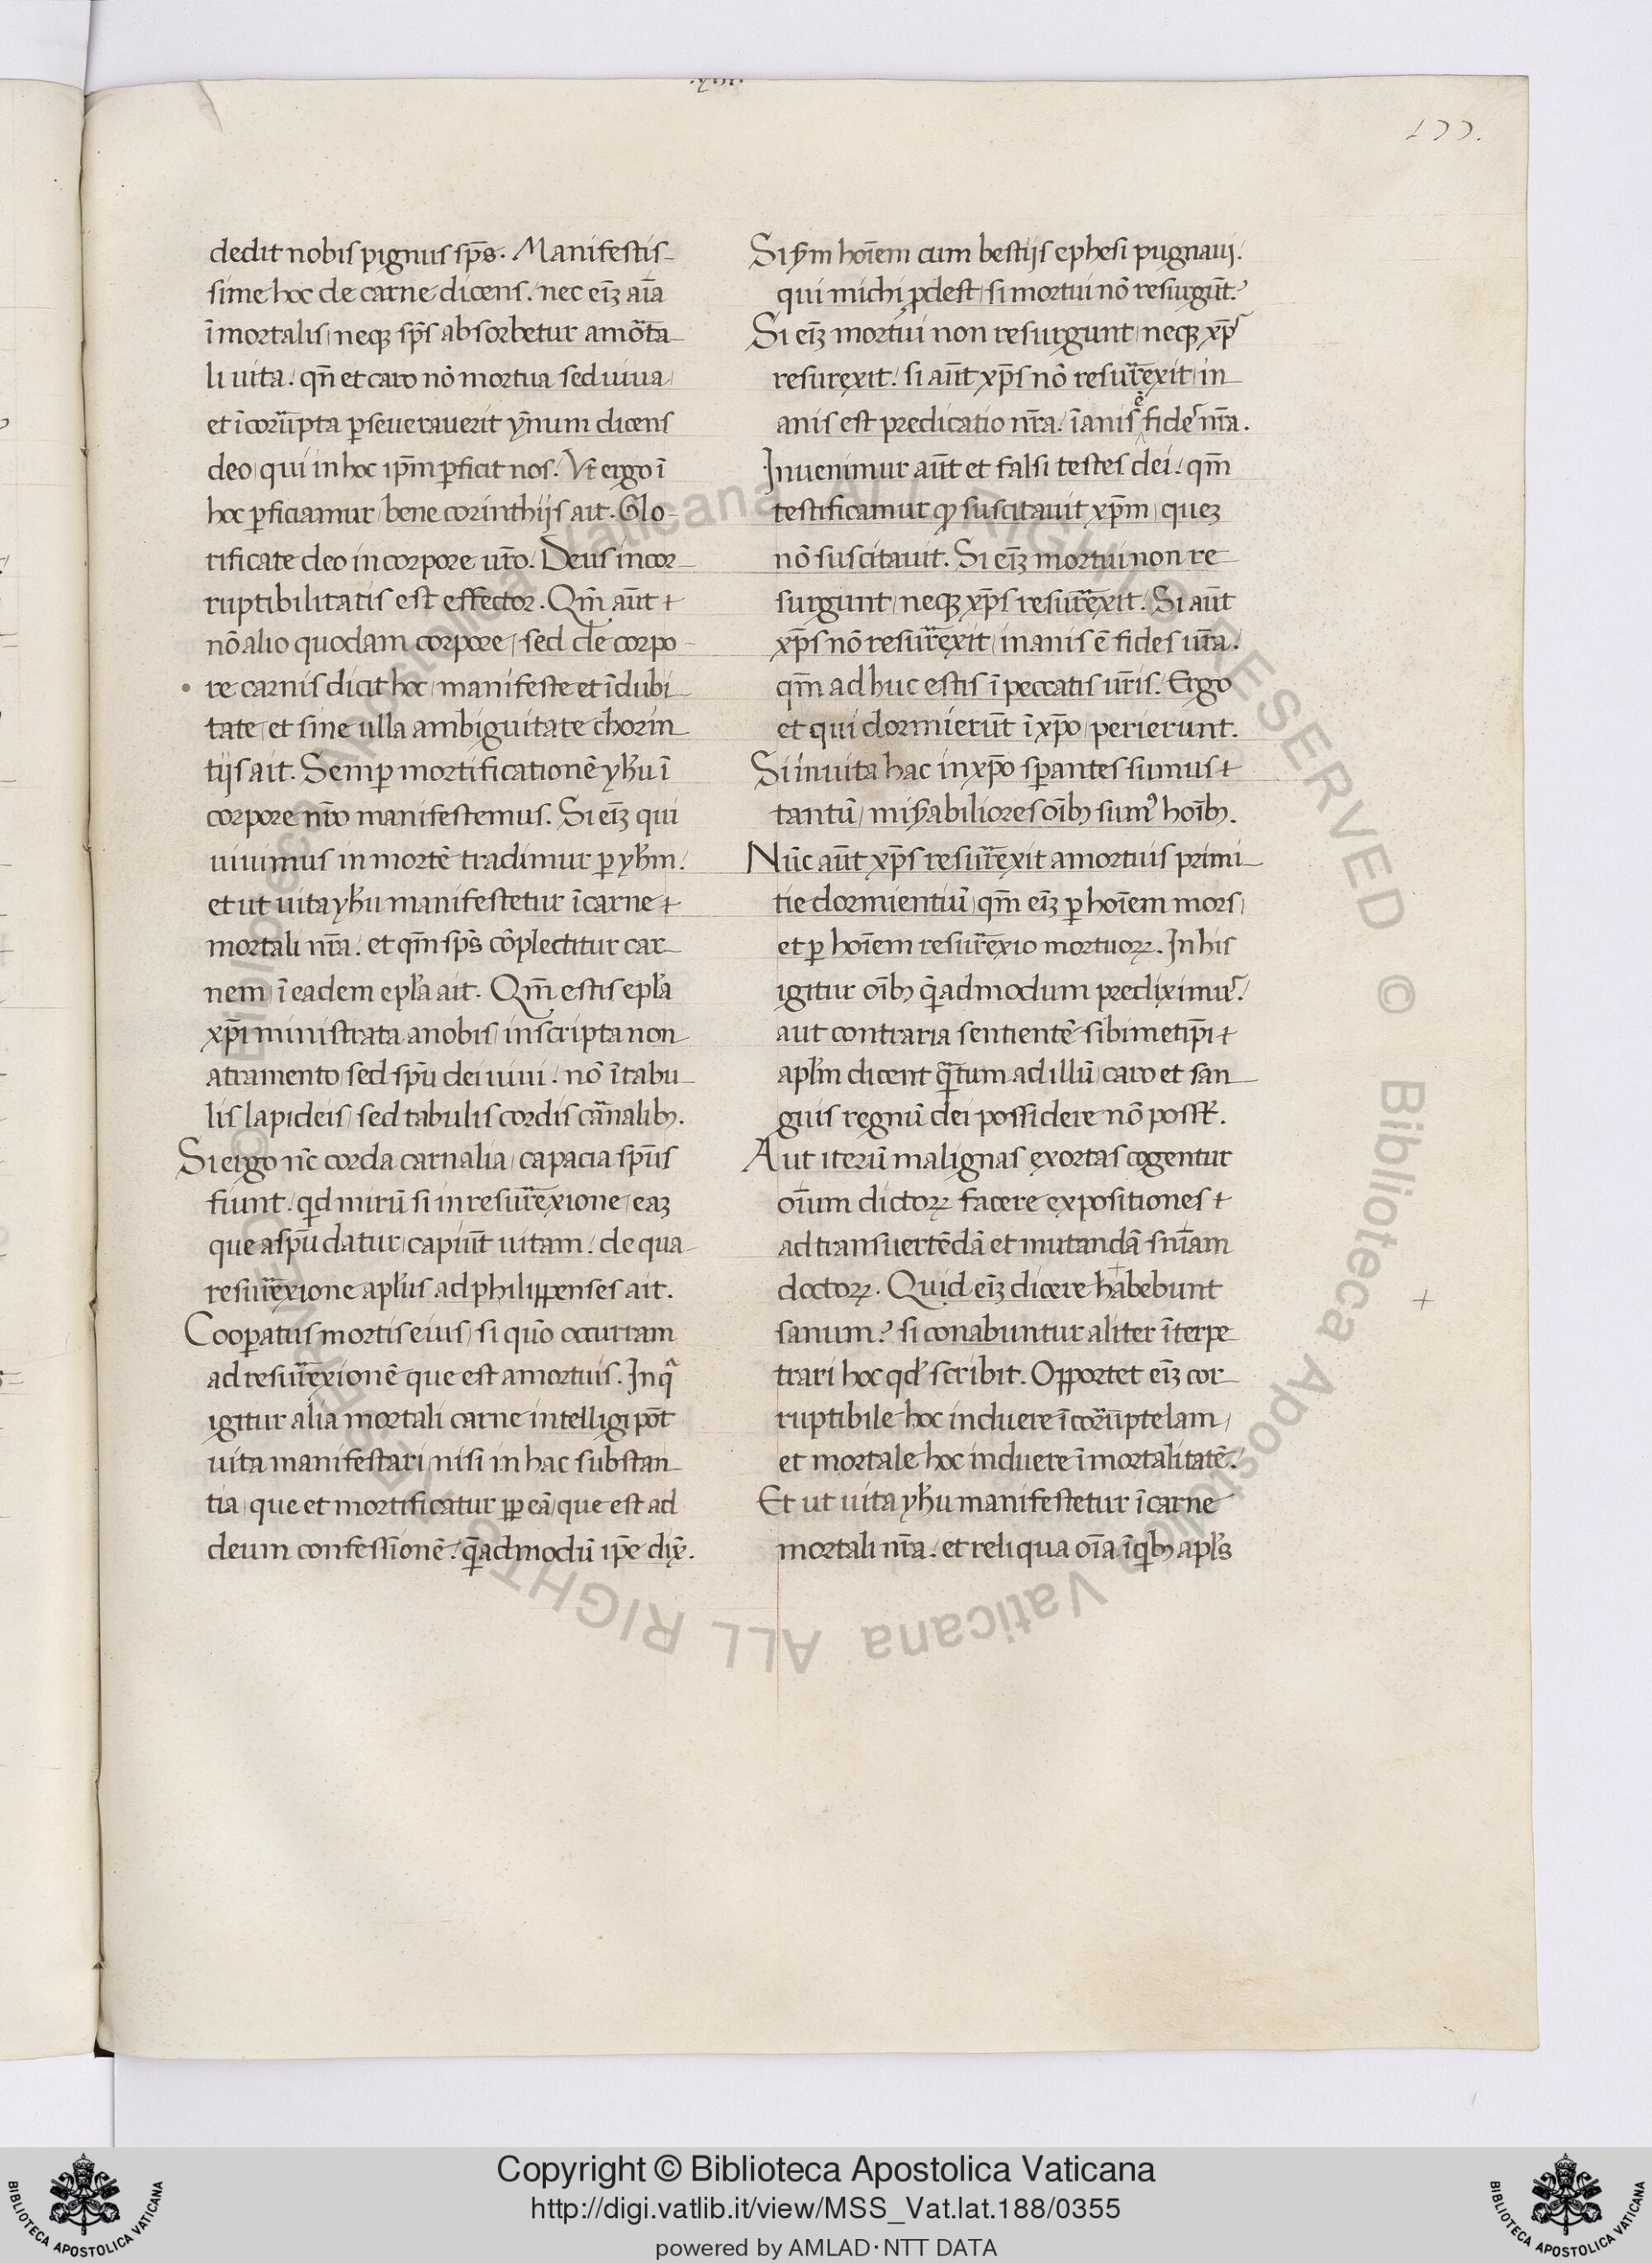 177.
dedit nobis pignus sp̄s. Manifestis-
sime hoc de carne dicens. nec eīꝫ aīa
īmortalis, neqꝫ sp̄s absorbetur a mor̄ta-
li uita. qn̄ et caro nō mortua sed uiua,
et īcorrūpta ꝑseuerauerit ymnum dicens
deo, qui in hoc ip̄m ꝑficit nos. Vt̄ ergo ī
hoc ꝑficiamur, bene corinthijs ait. Glo-
rificate deo in corpore ur̄o. Deus incor-
ruptibilitatis est effector. Qm̄ aūt
nō alio quodam corpore, sed de corpo-
re carnis dicit hoc, manifeste et īdubi-
tate, et sine ulla ambiguitate chorin-
tijs ait. Semꝑ mortificationē yħu ī
corpore nr̄o manifestemus. Si eīꝫ qui
uiuimus in mortē tradimur ꝑ yħm.
et ut uita yħu manifestetur ī carne
mortali nr̄a. et qm̄ sp̄s cōplectitur car-
nem, ī eadem epl̄a ait. Qm̄ estis epl̄a
xp̄i ministrata a nobis, inscripta non
atramento, sed sp̄u dei uiui. nō ī tabu-
lis lapideis, sed tabulis cordis carnalibꝫ.
Si ergo nc̄ corda carnalia, capacia sp̄us
fiunt. qd mirū si in resurrexione, eaꝫ
que a sp̄u datur, capiūt uitam. de qua
resurrexione apl̄us ad philippenses ait.
Cooꝑatus mortis eius, si quō occurram
ad resurrexionē que est a mortuis. In qᵃ
igitur alia mortali carne intelligi pōt
uita manifestari, nisi in hac substan-
tia, que et mortificatur ꝓpꝑ eā, que est ad
deum confessionē. qᵉ̄admodū ip̄e dix̄.
Si sm hoīem cum bestijs ephesi pugnaui.
qui michi ꝓdest, si mortui nō resurgūt?
Si eīꝫ mortui non resurgunt, neqꝫ xp̄s
resurexit. si aūt xp̄s nō resurrexit, in-
anis est predicatio nr̄a. īanis ē fides nr̄a.
Inuenimur aūt et falsi testes dei. qm̄
testificamur ꝙ suscitauit xp̄m, queꝫ
nō suscitauit. Si eīꝫ mortui non re-
surgunt, neqꝫ xp̄s resurrexit. Si aūt
xp̄s nō resurrexit, inanis ē fides ur̄a.
qm̄ ad huc estis ī peccatis ur̄is. Ergo
et qui dormierūt ī xp̄o, perierunt.
Si in uita hac in xp̄o sꝑantes sumus
tantū, misabiliores oībꝫ sum⁹ hoībꝫ.
Nūc aūt xp̄s resurrexit a mortuis primi-
tie dormientiū, qm̄ eīꝫ ꝑ hoīem mors,
et ꝑ hoīem resurrexio mortuoꝝ. In his
igitur oībꝫ qᵉ̄admodum prediximus.
aut contraria sentientes sibimetip̄i
apl̄m dicent qᵃ̄tum ad illū, caro et san-
guis regnū dei possidere nō posst̄.
Aut iterū malignas exortas cogentur
oīum dictoꝝ facere expositiones
ad transuertēdā et mutandā sn̄iam
doctoꝝ. Quid eīꝫ dicere habebunt
sanum? si conabuntur aliter īterpe-
trari hoc qd scribit. Opportet eīꝫ cor-
ruptibile hoc induere īcorrūptelam,
et mortale hoc induere īmortalitatē.
Et ut uita yħu manifestetur ī carne
mortali nr̄a. et reliqua oīa ī qⁱbꝫ apl̄s
Copyright © Biblioteca Apostolica Vaticana
http://digi.vatlib.it/view/MSS_Vat.lat.188/0355
powered by AMLAD·NTT DATA
BIBLIOTECA APOSTOLICA VATICANA
BIBLIOTECA APOSTOLICA VATICANA
© Biblioteca Apostolica Vaticana ALL RIGHTS RESERVED © Biblioteca Apostolica Vaticana ALL RIGHTS RESERVED